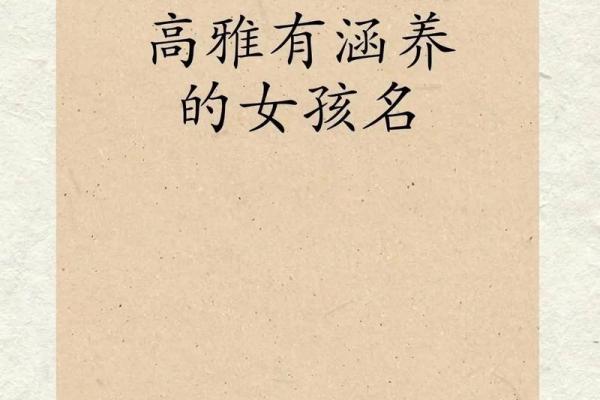 高雅有涵养
的女孩名